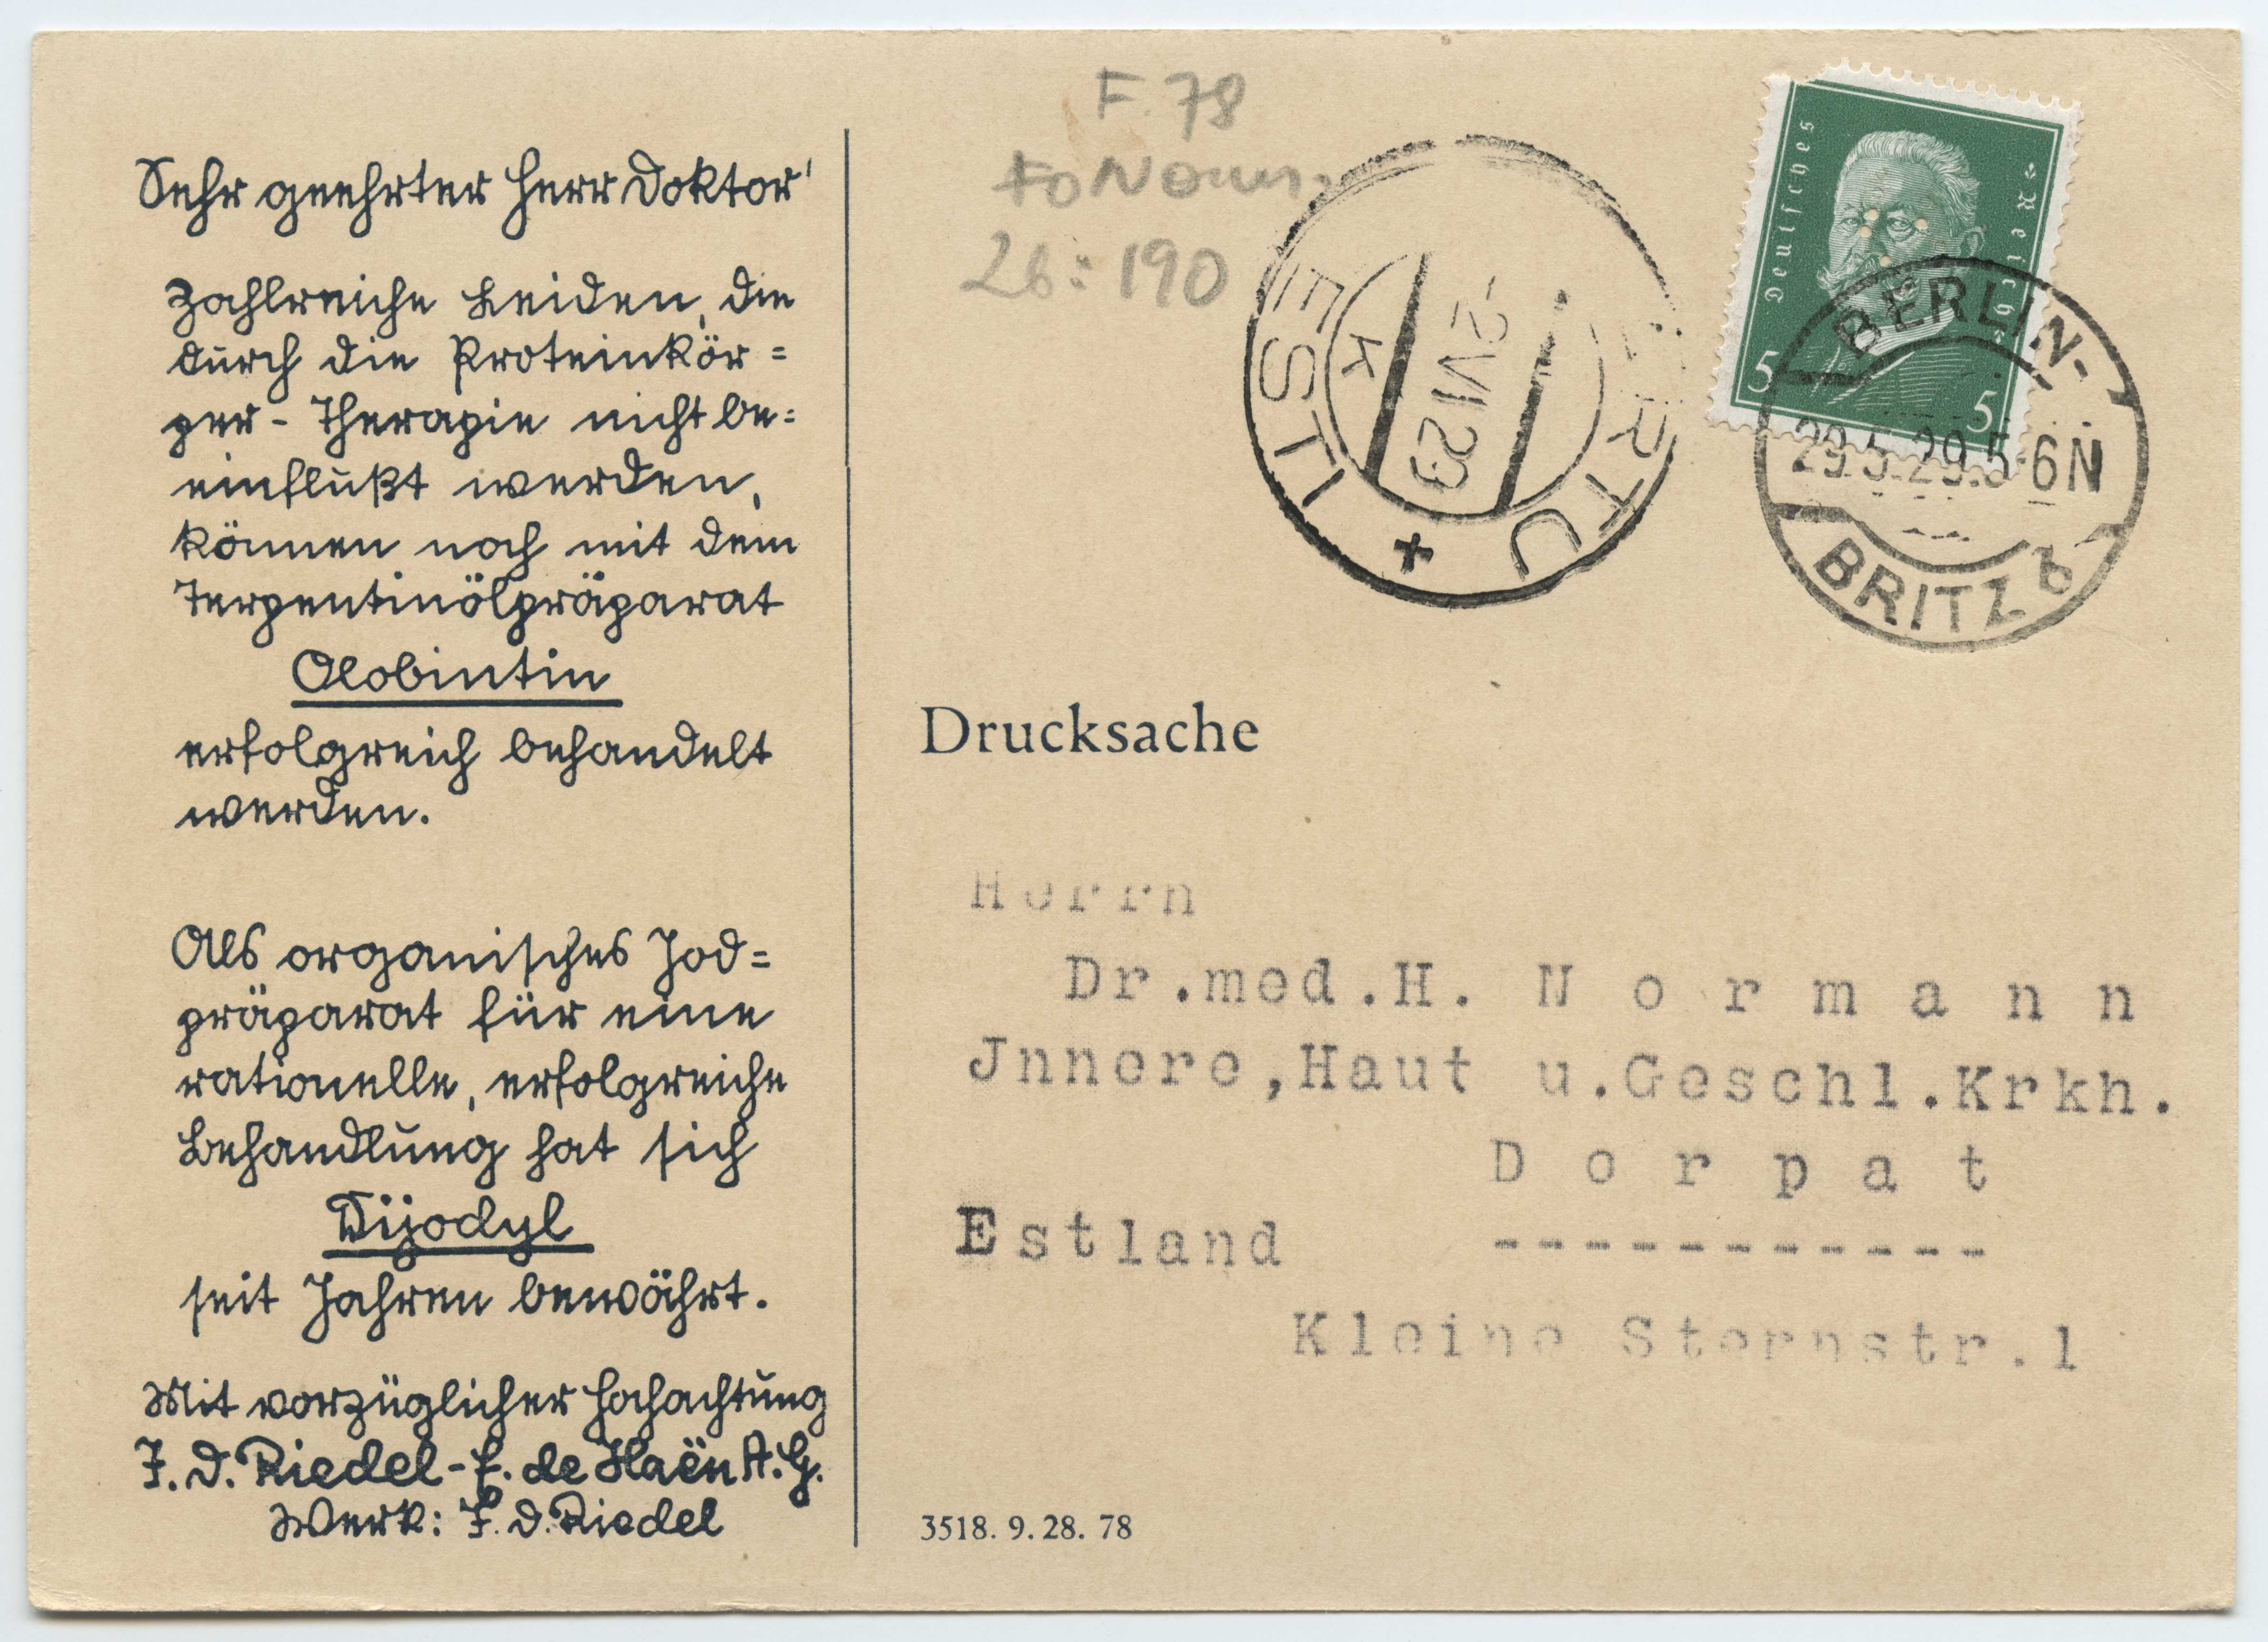 Sehr geehrter Herr Doktor!
Zahlreiche Leiden, die
durch die Proteinkör=
per-Therapie nicht be=
einflußt werden,
können noch mit dem
Terpentinölpräparat
Olobintin
erfolgreich behandelt
werden.
Als organisches Jod=
präparat für eine
rationelle, erfolgreiche
Behandlung hat sich
Dijodyl
seit Jahren bewährt.
Mit vorzüglicher Hochachtung
J. D. Riedel-E. de Haën A.G.
Werk: J. D. Riedel
F. 78
26: 190
TARTU
EESTI
K
-2 VI 29
Deutsches Reich
5 5
BERLIN-
29.5.29.5-6N
BRITZ b
Drucksache
Herrn
Dr.med.H. Normann
Jnnere,Haut u.Geschl.Krkh.
Dorpat
Estland
Kleine Sternstr.1
3518. 9. 28. 78